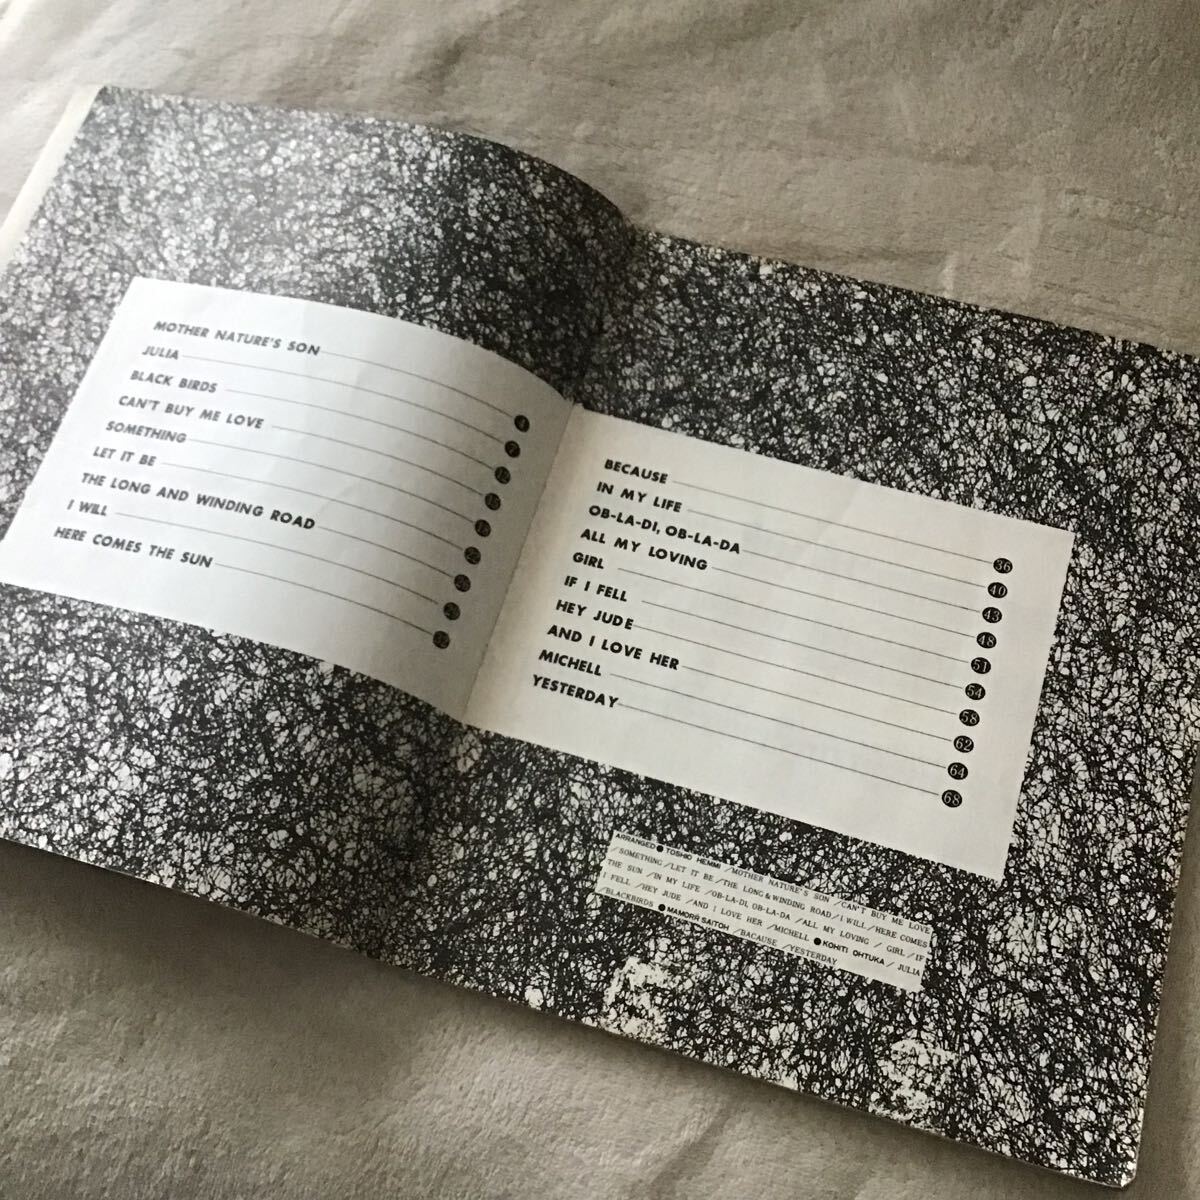 MOTHER NATURE'S SON 4
JULIA 7
BLACK BIRDS
CAN'T BUY ME LOVE
SOMETHING
LET IT BE
THE LONG AND WINDING ROAD
I WILL
HERE COMES THE SUN
BECAUSE 36
IN MY LIFE 40
OB-LA-DI, OB-LA-DA 43
ALL MY LOVING 48
GIRL 51
IF I FELL 54
HEY JUDE 58
AND I LOVE HER 62
MICHELL 64
YESTERDAY 68
ARRANGED ● TOSHIO HEMMI /MOTHER NATURE'S SON /CAN'T BUY ME LOVE
/SOMETHING /LET IT BE /THE LONG & WINDING ROAD /I WILL /HERE COMES
THE SUN /IN MY LIFE /OB-LA-DI, OB-LA-DA /ALL MY LOVING / GIRL /IF
I FELL /HEY JUDE /AND I LOVE HER /MICHELL ● KOHITI OHTUKA / JULIA
/BLACKBIRDS ● MAMORR SAITOH /BACAUSE /YESTERDAY